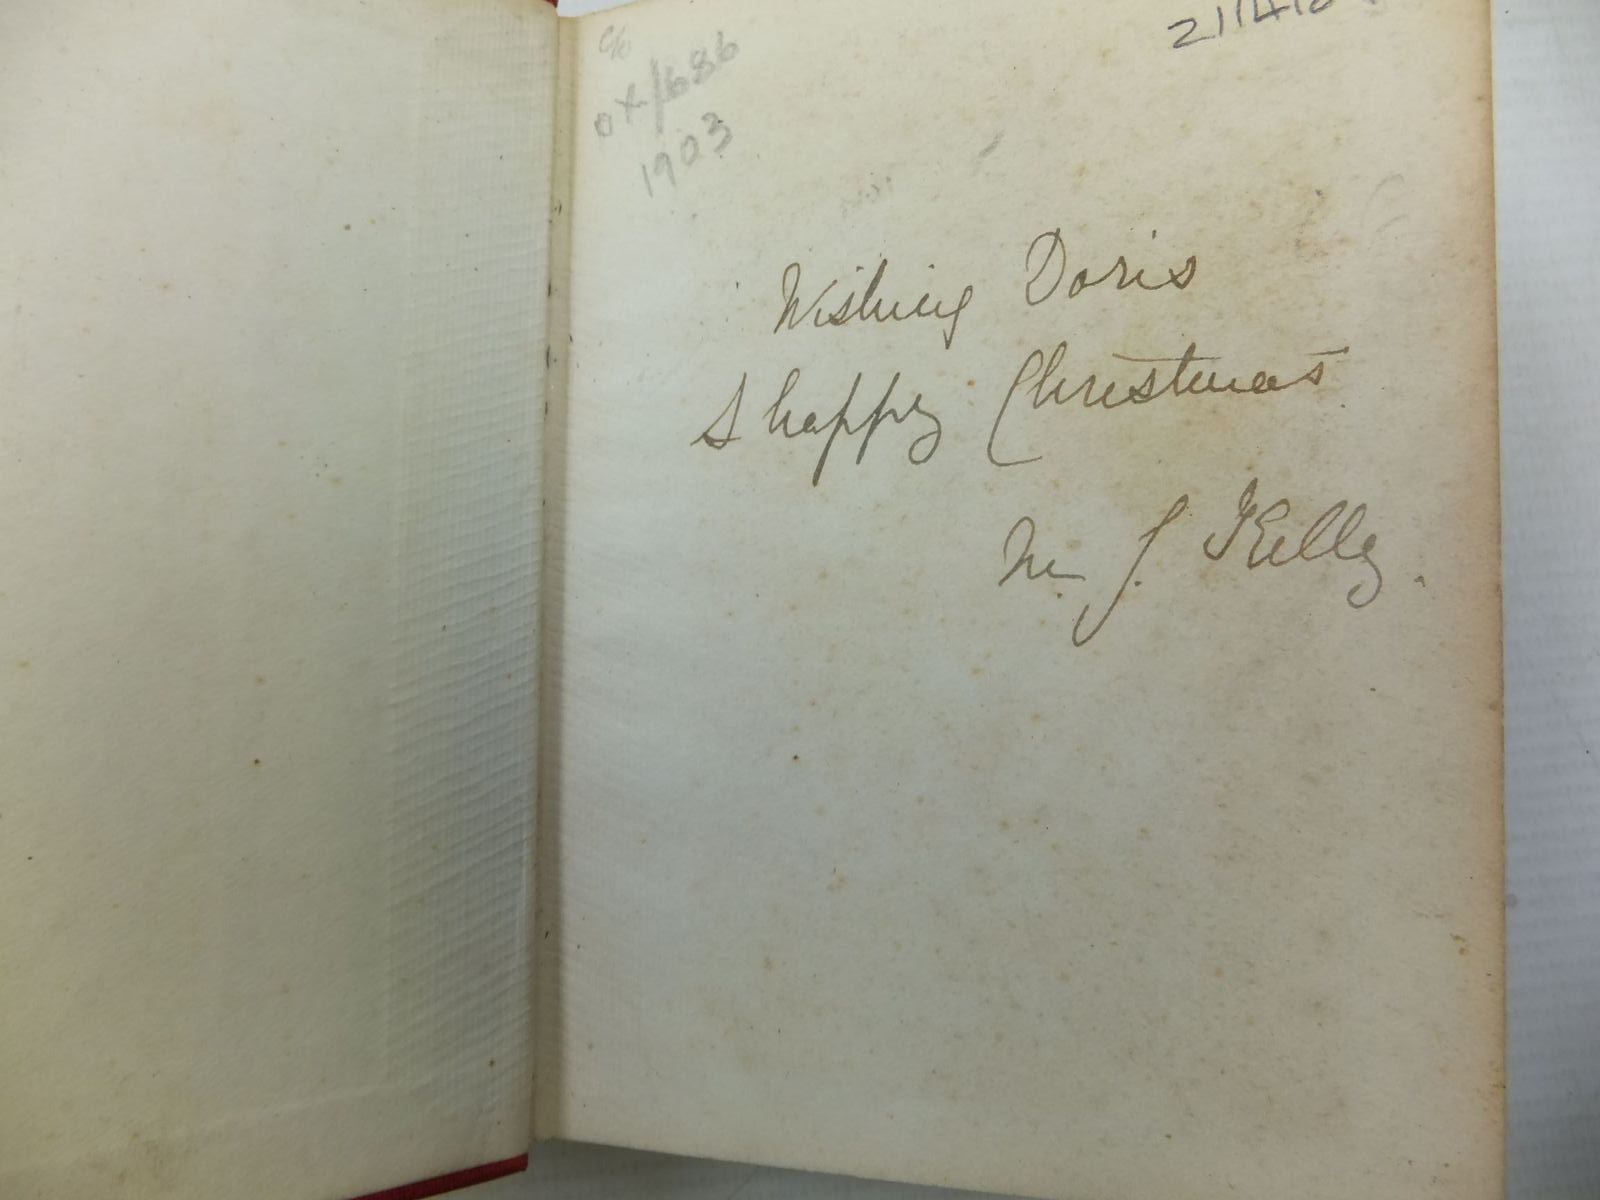 ox/686
1903
Wishing Doris
A happy Christmas
M. J. Kelly.